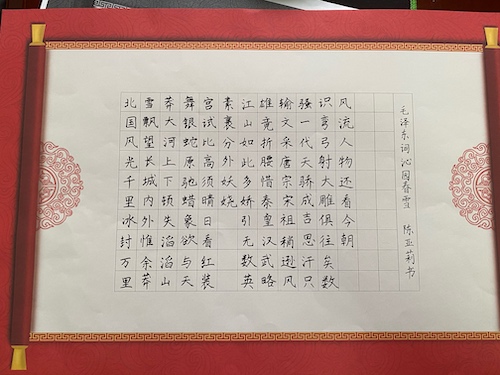 北国风光千里冰封万里
雪飘望长城内外惟余莽
莽大河上下顿失滔滔山
舞银蛇原驰蜡象欲与天
宫试比高须晴日看红装
素裹分外妖娆
江山如此多娇引无数英
雄竟折腰惜秦皇汉武略
输文采唐宗宋祖稍逊风
骚一代天骄成吉思汗只
识弯弓射大雕俱往矣数
风流人物还看今朝
毛泽东词沁园春雪 陈亚莉书